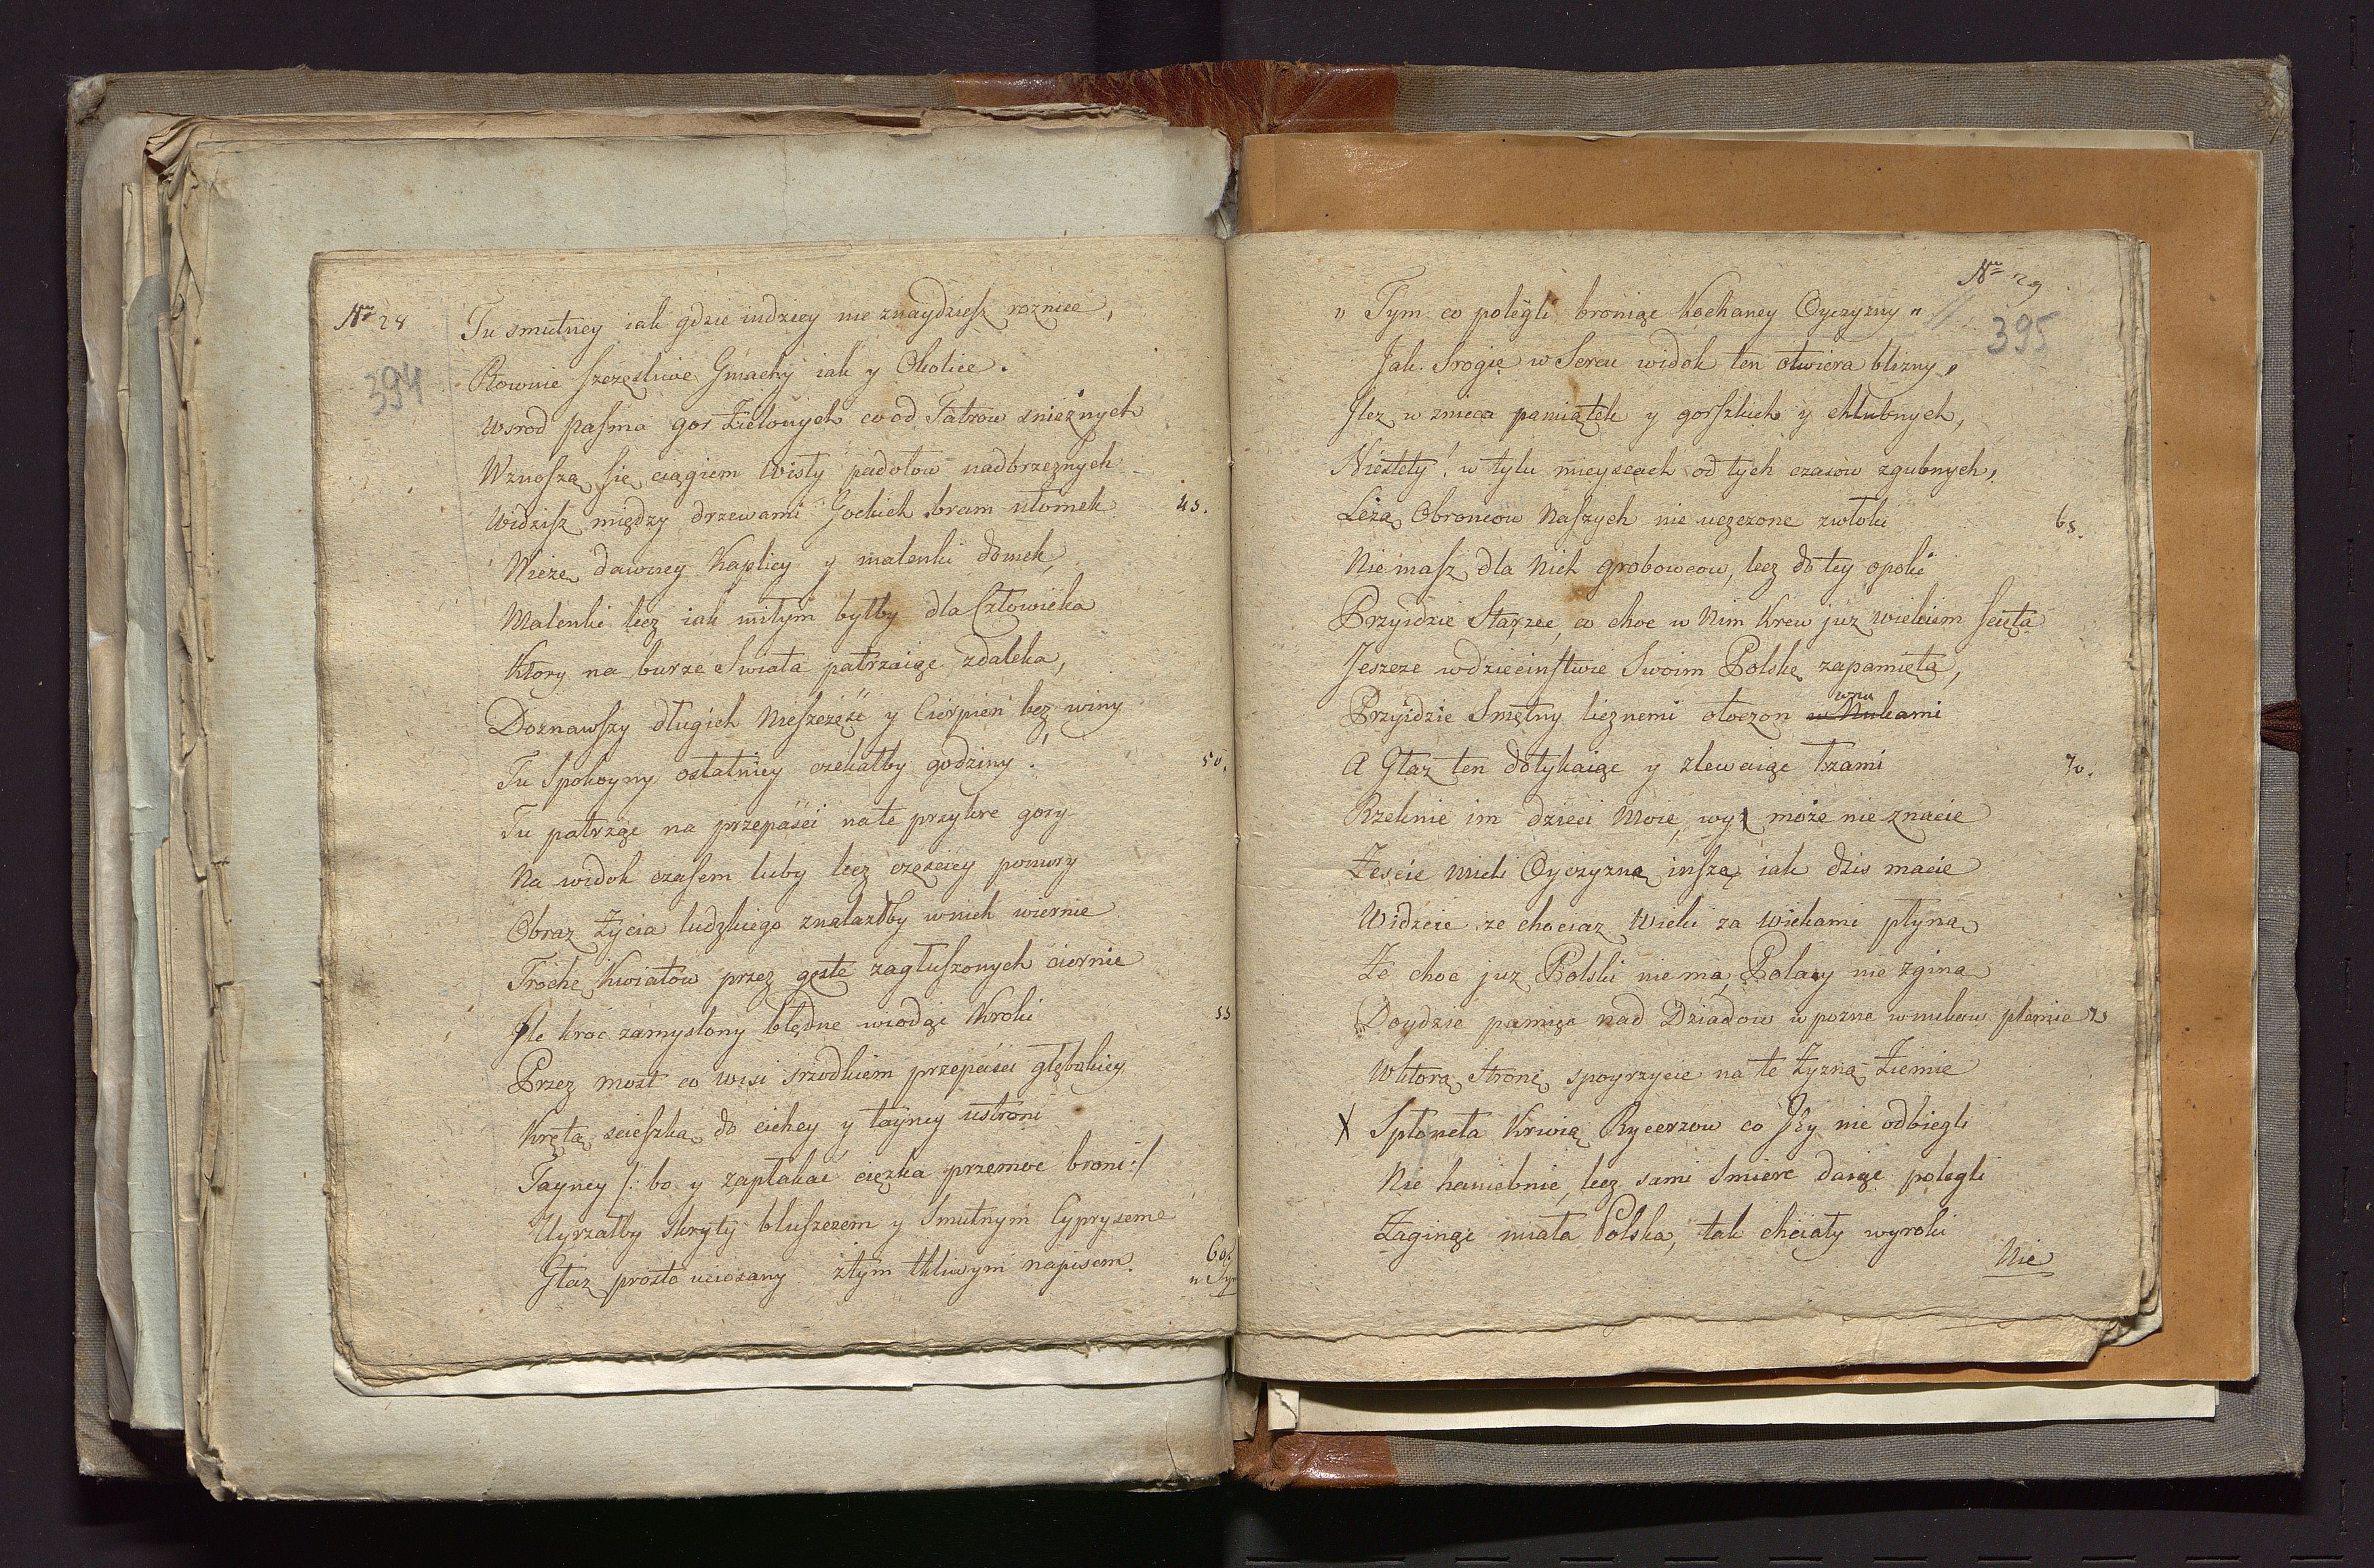 Nro 28
394
Tu smutney iak gdzie indziey nie znaydziesz roznice,
Rownie szczęsliwe Gmachy iak y Okolice.
Wsrod pasma gor Zielonych co od Tatrow snieżnych
Wznoszą się ciągiem Wisły padołow nadbrzeznych
Widzisz między drzewami Gockich bram ułomek 45.
Wieżę dawney Kaplicy y malenki domek,
Malenki lecz iak miłym byłby dla Człowieka
Ktory na burze Swiata patrzaiąc zdaleka,
Doznawszy długich Nieszczęść y Cierpień bez winy
Tu Spokoyny ostatniey czekałby godziny. 50.
Tu patrząc na przepaści na te przykre gory
Na widok czasem luby lecz częściey ponury
Obraz Życia ludzkiego znalazłby wnich wiernie
Trochę Kwiatow przez gęste zagłuszonych ciernie
Ile kroc zamyslony błędne wiodąc Kroki 55
Przez most co wisi srzodkiem przepaści głębokiey
Krętą scieszką do cichey y tayney ustroni
Tayney /: bo y zapłakać cięzka przemoc broni :/
Uyrzałby skryty bluszczem y Smutnym Cyprysem
Głaz prosto uciosany z tym tkliwym napisem. 60.
" Tym
Nro 29
395
" Tym co polegli broniąc Kochaney Oyczyzny "
Jak Srogie w Sercu widok ten otwiera blizny,
Ilez wznieca pamiątek y gorszkich y chlubnych,
Niestety! w tylu mieyscach od tych czasow zgubnych,
Leżą Obroncow Naszych nie uczczone zwłoki 65.
Nie masz dla Nich grobowcow, lecz do tey opoki
Przyidzie Starzec, co choc w Nim Krew juz wiekiem scięta
Jeszcze wdziecinstwie Swoim Polskę zapamięta,
wnu
Przyidzie Smętny licznemi otoczon w Nukami
A Głaz ten dotykaiąc y zlewaiąc łzami 70.
Rzeknie im dzieci Moie, wy może nie znacie
Żescie mieli Oyczyznę inszą iak dzis macie
Widzcie ze chociaz Wieki za wiekami płyną
Że choc juz Polski nie ma, Polacy nie zginą
Doydzie pamięc nad Dziadow w pozne wnukow plemie 75
Wktorą stronę spoyrzycie na te Żyzną Ziemie
X Spłoneła Krwią Rycerzow co Jey nie odbiegli
Nie haniebnie, lecz sami Smierc daiąc polegli
Zaginąc miała Polska, tak chciały wyroki
Nie